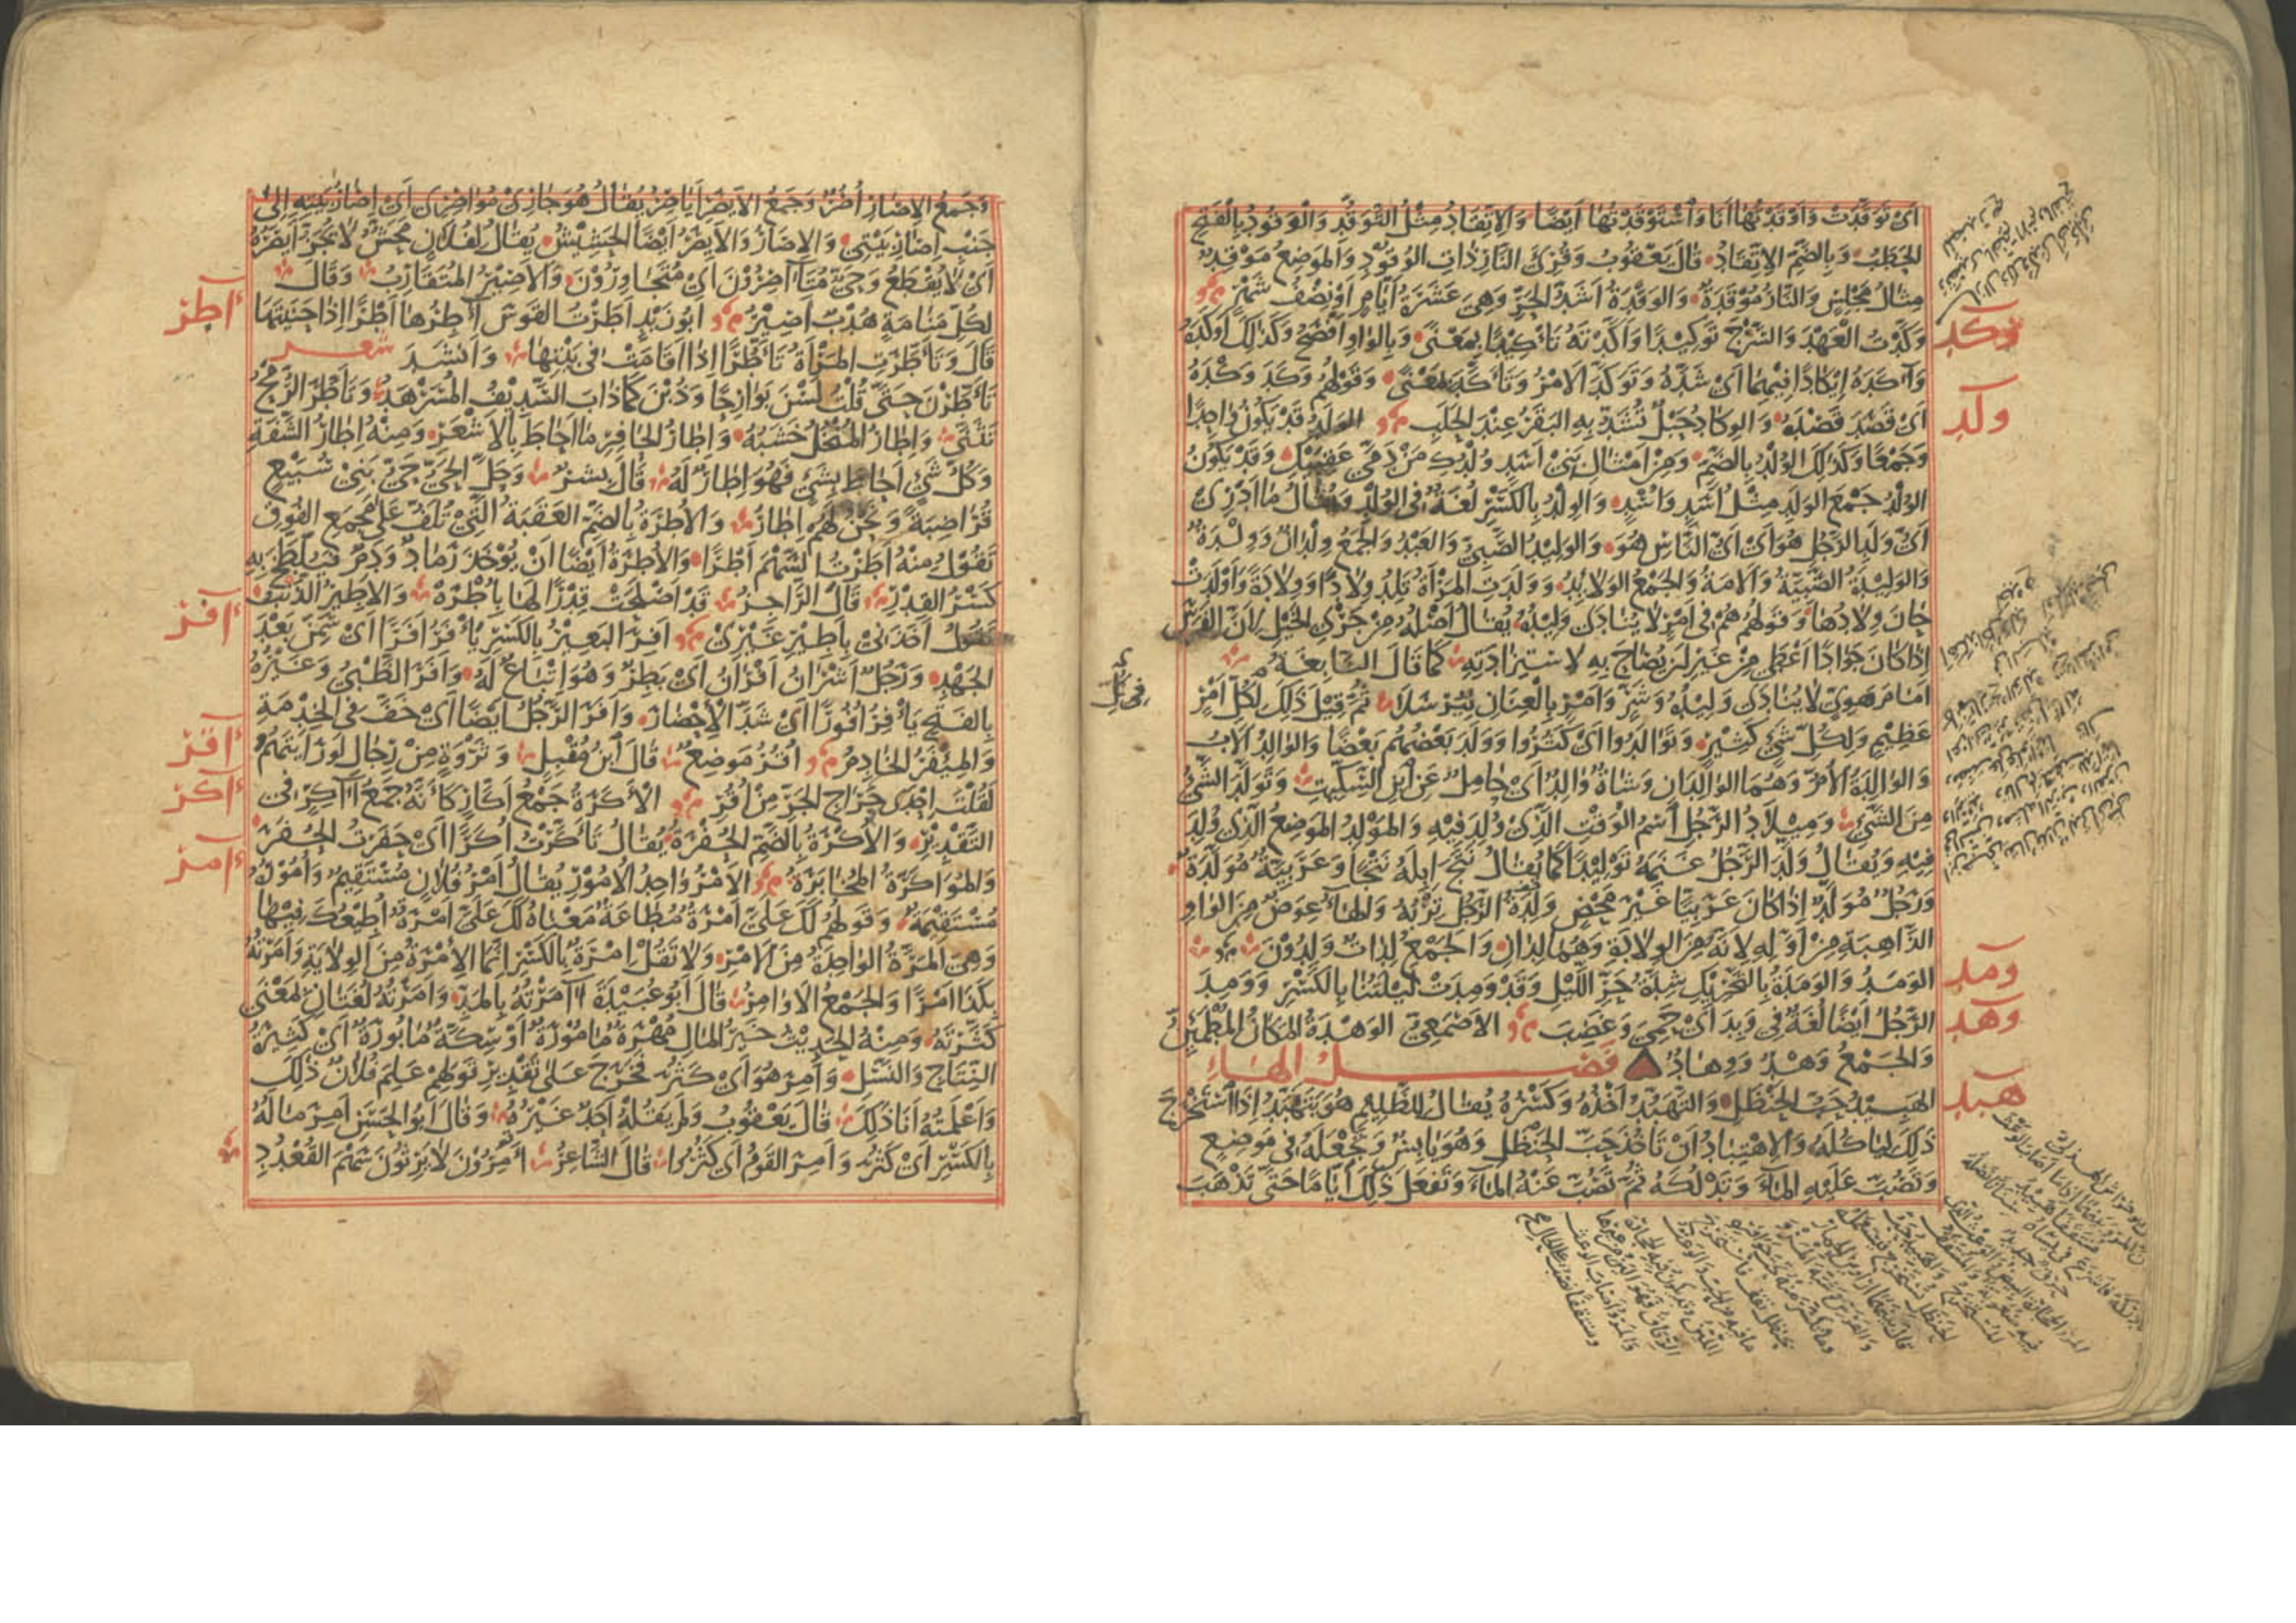 اَىْ تَوَقَّدَتْ وَاَوْقَدْتُهَا اَنَا وَاسْتَوْقَدْتُهَا اَيْضًا وَالاِتِّقَادُ مِثْلُ التَّوَقُّدِ وَالْوَقُودُ بِالْفَتْحِ
الحَطَبُ وَبِالضَّمِّ الاِتِّقَادُ قَالَ يَعْقُوبُ وَقُرِئَ النَّارِ ذَاتِ الوُقُودِ وَالمَوْضِعُ مَوْقِدٌ
مِثَالُ مَجْلِسٍ وَالنَّارُ مُوْقَدَةٌ وَالوَقْدَةُ اَشَدُّ الحَرِّ وَهِىَ عَشَرَةُ اَيَّامٍ اَوْ نِصْفُ شَهْرٍ
وكد
وَكَّدْتُ العَهْدَ وَالسَّرْجَ تَوْكِيْدًا وَاَكَّدْتُهُ تَأْكِيْدًا بِمَعْنًى وَبِالوَاوِ اَفْصَحُ وَكَذَلِكَ اَوْكَدَهُ
وَآكَدَهُ اِيْكَادًا فِيْهِمَا اَىْ شَدَّهُ وَتَوَكَّدَ الاَمْرُ وَتَأَكَّدَ بِمَعْنًى وَقَوْلُهُمْ وَكَدَ وَكْدَهُ
ولد
اَىْ قَصَدَ قَصْدَهُ وَالوِكَادُ حَبْلٌ تُشَدُّ بِهِ البَقَرُ عِنْدَ الحَلَبِ الوَلَدُ قَدْ يَكُوْنُ وَاحِدًا
وَجَمْعًا وَكَذَلِكَ الوُلْدُ بِالضَّمِّ وَمِنْ اَمْثَالِ بَنِىْ اَسَدٍ وُلْدُكِ مَنْ دَمَّى عَقِبَيْكِ وَقَدْ يَكُوْنُ
الوُلْدُ جَمْعَ الوَلَدِ مِثْلُ اَسَدٍ وَاُسْدٍ وَالوِلْدُ بِالكَسْرِ لُغَةٌ فِى الوُلْدِ وَيُقَالُ مَا اَدْرِىْ
اَىُّ وَلَدِ الرَّجُلِ هُوَ اَىْ اَىُّ النَّاسِ هُوَ وَالوَلِيْدُ الصَّبِىُّ وَالعَبْدُ وَالجَمْعُ وِلْدَانٌ وَوِلْدَةٌ
وَالوَلِيْدَةُ الصَّبِيَّةُ وَالاَمَةُ وَالجَمْعُ الوَلَائِدُ وَوَلَدَتِ المَرْأَةُ تَلِدُ وِلَادًا وَوِلَادَةً وَاَوْلَدَتْ
حَانَ وِلَادُهَا وَقَوْلُهُمْ هُمْ فِى اَمْرٍ لَا يُنَادَى وَلِيْدُهُ يُقَالُ اَصْلُهُ مِنْ جَرْىِ الخَيْلِ لِاَنَّ الفَرَسَ
اِذَا كَانَ جَوَادًا اَعْطَى مِنْ غَيْرِ اَنْ يُصَاحَ بِهِ لاِسْتِزَادَتِهِ كَمَا قَالَ النَّابِغَةُ
اَمَامَ هَوِىٍّ لَا يُنَادَى وَلِيْدُهُ وَشَدٍّ وَاَمْرٍ بِالْعِنَانِ لِيُرْسَلَا ثُمَّ قِيْلَ ذَلِكَ لِكُلِّ اَمْرٍ
عَظِيْمٍ وَلِكُلِّ شَىْءٍ كَثِيْرٍ وَتَوَالَدُوا اَىْ كَثُرُوا وَوَلَدَ بَعْضُهُمْ بَعْضًا وَالوَالِدُ الاَبُ
وَالوَالِدَةُ الاُمُّ وَهُمَا الوَالِدَانِ وَشَاةٌ وَالِدٌ اَىْ حَامِلٌ عَنِ ابْنِ السِّكِّيْتِ وَتَوَلَّدَ الشَّىْءُ
مِنَ الشَّىْءِ وَمِيْلَادُ الرَّجُلِ اسْمُ الوَقْتِ الَّذِىْ وُلِدَ فِيْهِ وَالمَوْلِدُ المَوْضِعُ الَّذِى وُلِدَ
فِيْهِ وَيُقَالُ وَلَّدَ الرَّجُلُ غَنَمَهُ تَوْلِيْدًا كَمَا يُقَالُ نَتَجَ اِبِلَهُ نَتْجًا وَعَرَبِيَّةٌ مُوَلَّدَةٌ
وَرَجُلٌ مُوَلَّدٌ اِذَا كَانَ عَرَبِيًّا غَيْرَ مَحْضٍ وَلِدَةُ الرَّجُلِ تِرْبُهُ وَالهَاءُ عِوَضٌ مِنَ الوَاوِ
الذَّاهِبَةِ مِنْ اَوَّلِهِ لِاَنَّهُ مِنَ الوِلَادَةِ وَهُمَا لِدَانِ وَالجَمْعُ لِدَاتٌ وَلِدُوْنَ
ومد
الوَمَدُ وَالوَمَدَةُ بِالتَّحْرِيْكِ شِدَّةُ حَرِّ اللَّيْلِ وَقَدْ وَمِدَتْ لَيْلَتُنَا بِالكَسْرِ وَوَمِدَ
وهد
الرَّجُلُ اَيْضًا لُغَةٌ فِى وَبِدَ اَىْ حَمِىَ وَغَضِبَ الاَصْمَعِىُّ الوَهْدَةُ المَكَانُ المُطْمَئِنُّ
وَالجَمْعُ وَهْدٌ وَوِهَادٌ فَصْلُ الهَاءِ
هبد
الهَبِيْدُ حَبُّ الحَنْظَلِ وَالتَّهَبُّدُ اَخْذُهُ وَكَسْرُهُ يُقَالُ لِلظَّلِيْمِ هُوَ يَتَهَبَّدُ اِذَا اسْتَخْرَجَ
ذَلِكَ لِيَأْكُلَهُ وَالاِهْتِبَادُ اَنْ تَأْخُذَ حَبَّ الحَنْظَلِ وَهُوَ يَابِسٌ وَتَجْعَلَهُ فِى مَوْضِعٍ
وَتَصُبَّ عَلَيْهِ المَاءَ وَتَدْلُكَهُ ثُمَّ تَصُبَّ عَنْهُ المَاءَ وَتَفْعَلَ ذَلِكَ اَيَّامًا حَتَّى تَذْهَبَ
وَجَمْعُ الاِصَارِ اُصُرٌ وَجَمْعُ الاَيْصَرِ اَيَاصِرُ يُقَالُ هُوَ جَارِىْ مُوَاصِرِى اَىْ اِصَارُ بَيْتِهِ اِلَى
جَنْبِ اِصَارِ بَيْتِى وَالاِصَارُ وَالاَيْصَرُ اَيْضًا الحَشِيْشُ يُقَالُ لِفُلَانٍ مَحَشٌّ لَا يُجَزُّ اَيْصَرُهُ
اَىْ لَا يُقْطَعُ وَحَىٌّ مُتَآصِرُوْنَ اَىْ مُتَجَاوِرُوْنَ وَالاَصِيْرُ المُتَقَارِبُ وَقَالَ
أطر
لِكُلِّ مَنَامَةٍ هُدْبٌ اَصِيْرُ اَبُوْ زَيْدٍ اَطَرْتُ القَوْسَ آطِرُهَا اَطْرًا اِذَا حَنَيْتَهَا
قَالَ وَتَأَطَّرَتِ المَرْأَةُ تَأَطُّرًا اِذَا اَقَامَتْ فِى بَيْتِهَا وَاَنْشَدَ شعر
تَأَطَّرْنَ حَتَّى قُلْتُ لَسْنَ بَوَارِحًا وَذُبْنَ كَمَا ذَابَ السَّدِيْفُ المُسَرْهَدُ وَتَأَطَّرَ الرُّمْحُ
تَثَنَّى وَاِطَارُ المُنْخُلِ خَشَبُهُ وَاِطَارُ الحَافِرِ مَا اَحَاطَ بِالاَشْعَرِ وَمِنْهُ اِطَارُ الشَّفَةِ
وَكُلُّ شَىْءٍ اَحَاطَ بِشَىْءٍ فَهُوَ اِطَارٌ لَهُ قَالَ بِشْرٌ وَحَلَّ الحَىُّ حَىُّ بَنِىْ سُبَيْعٍ
قُرَاضِبَةً وَنَحْنُ لَهُمْ اِطَارُ وَالاُطْرَةُ بِالضَّمِّ العَقَبَةُ الَّتِىْ تُلَفُّ عَلَى مَجْمَعِ الفُوْقِ
تَقُوْلُ مِنْهُ اَطَرْتُ السَّهْمَ اَطْرًا وَالاُطْرَةُ اَيْضًا اَنْ يُؤْخَذَ رَمَادٌ وَدَمٌ فَيُلْطَخَ بِهِ
كَسْرُ القِدْرِ قَالَ الرَّاجِزُ قَدْ اَصْلَحَتْ قِدْرًا لَهَا بِاُطْرَهْ وَالاَطِيْرُ الذَّنْبُ
أفر
يَقُوْلُ اَخَذَنِىْ بِاَطِيْرِ غَيْرِىْ اَفِرَ البَعِيْرُ بِالكَسْرِ يَأْفَرُ اَفَرًا اَىْ سَمِنَ بَعْدَ
الجَهْدِ وَرَجُلٌ اَشْرَانُ اَفْرَانُ اَىْ بَطِرٌ وَهُوَ اِتْبَاعٌ لَهُ وَاَفَرَ الظَّبْىُ وَغَيْرُهُ
بِالفَتْحِ يَأْفِرُ اُفُوْرًا اَىْ شَدَّ الاِحْضَارَ وَاَفَرَ الرَّجُلُ اَيْضًا اَىْ خَفَّ فِى الخِدْمَةِ
أقر
وَالمِيْفَرُ الخَادِمُ اُقُرُ مَوْضِعٌ قَالَ ابْنُ مُقْبِلٍ وَثَرْوَةٍ مِنْ رِجَالٍ لَوْ رَاَيْتَهُمْ
أكر
لَقُلْتَ اِحْدَى حِرَاجِ الجَرِّ مِنْ اُقُرِ الاَكَرَةُ جَمْعُ اَكَّارٍ كَاَنَّهُ جَمْعُ آكِرٍ فِى
التَّقْدِيْرِ وَالاُكْرَةُ بِالضَّمِّ الحُفْرَةُ يُقَالُ تَأَكَّرْتُ اُكَرًا اَىْ حَفَرْتُ الحُفَرَ
أمر
وَالمُوَاكَرَةُ المُخَابَرَةُ الاَمْرُ وَاحِدُ الاُمُوْرِ يُقَالُ اَمْرُ فُلَانٍ مُسْتَقِيْمٌ وَاُمُوْرُهُ
مُسْتَقِيْمَةٌ وَقَوْلُهُمْ لَكَ عَلَىَّ اَمْرَةٌ مُطَاعَةٌ مَعْنَاهُ لَكَ عَلَىَّ اَمْرَةٌ اُطِيْعُكَ فِيْهَا
وَهِىَ المَرَّةُ الوَاحِدَةُ مِنَ الاَمْرِ وَلَا تَقُلْ اِمْرَةٌ بِالكَسْرِ اِنَّمَا الاِمْرَةُ مِنَ الوِلَايَةِ وَاَمَرْتُهُ
بِكَذَا اَمْرًا وَالجَمْعُ الاَوَامِرُ قَالَ اَبُوْ عُبَيْدَةَ آمَرْتُهُ بِالمَدِّ وَاَمَرْتُهُ لُغَتَانِ بِمَعْنَى
كَثَّرْتُهُ وَمِنْهُ الحَدِيْثُ خَيْرُ المَالِ مُهْرَةٌ مَأْمُوْرَةٌ اَوْ سِكَّةٌ مَأْبُوْرَةٌ اَىْ كَثِيْرَةُ
النِّتَاجِ وَالنَّسْلِ وَاَمِرَ هُوَ اَىْ كَثُرَ فَخَرَجَ عَلَى تَقْدِيْرِ قَوْلِهِمْ عَلِمَ فُلَانٌ ذَلِكَ
وَاَعْلَمْتُهُ اَنَا ذَلِكَ قَالَ يَعْقُوْبُ وَلَمْ يَقُلْهُ اَحَدٌ غَيْرُهُ وَقَالَ اَبُو الحَسَنِ اَمِرَ مَالُهُ
بِالكَسْرِ اَىْ كَثُرَ وَاَمِرَ القَوْمُ اَىْ كَثُرُوا قَالَ الشَّاعِرُ اَمِرُوْنَ لَا يَرِثُوْنَ سَهْمَ القُعْدُدِ